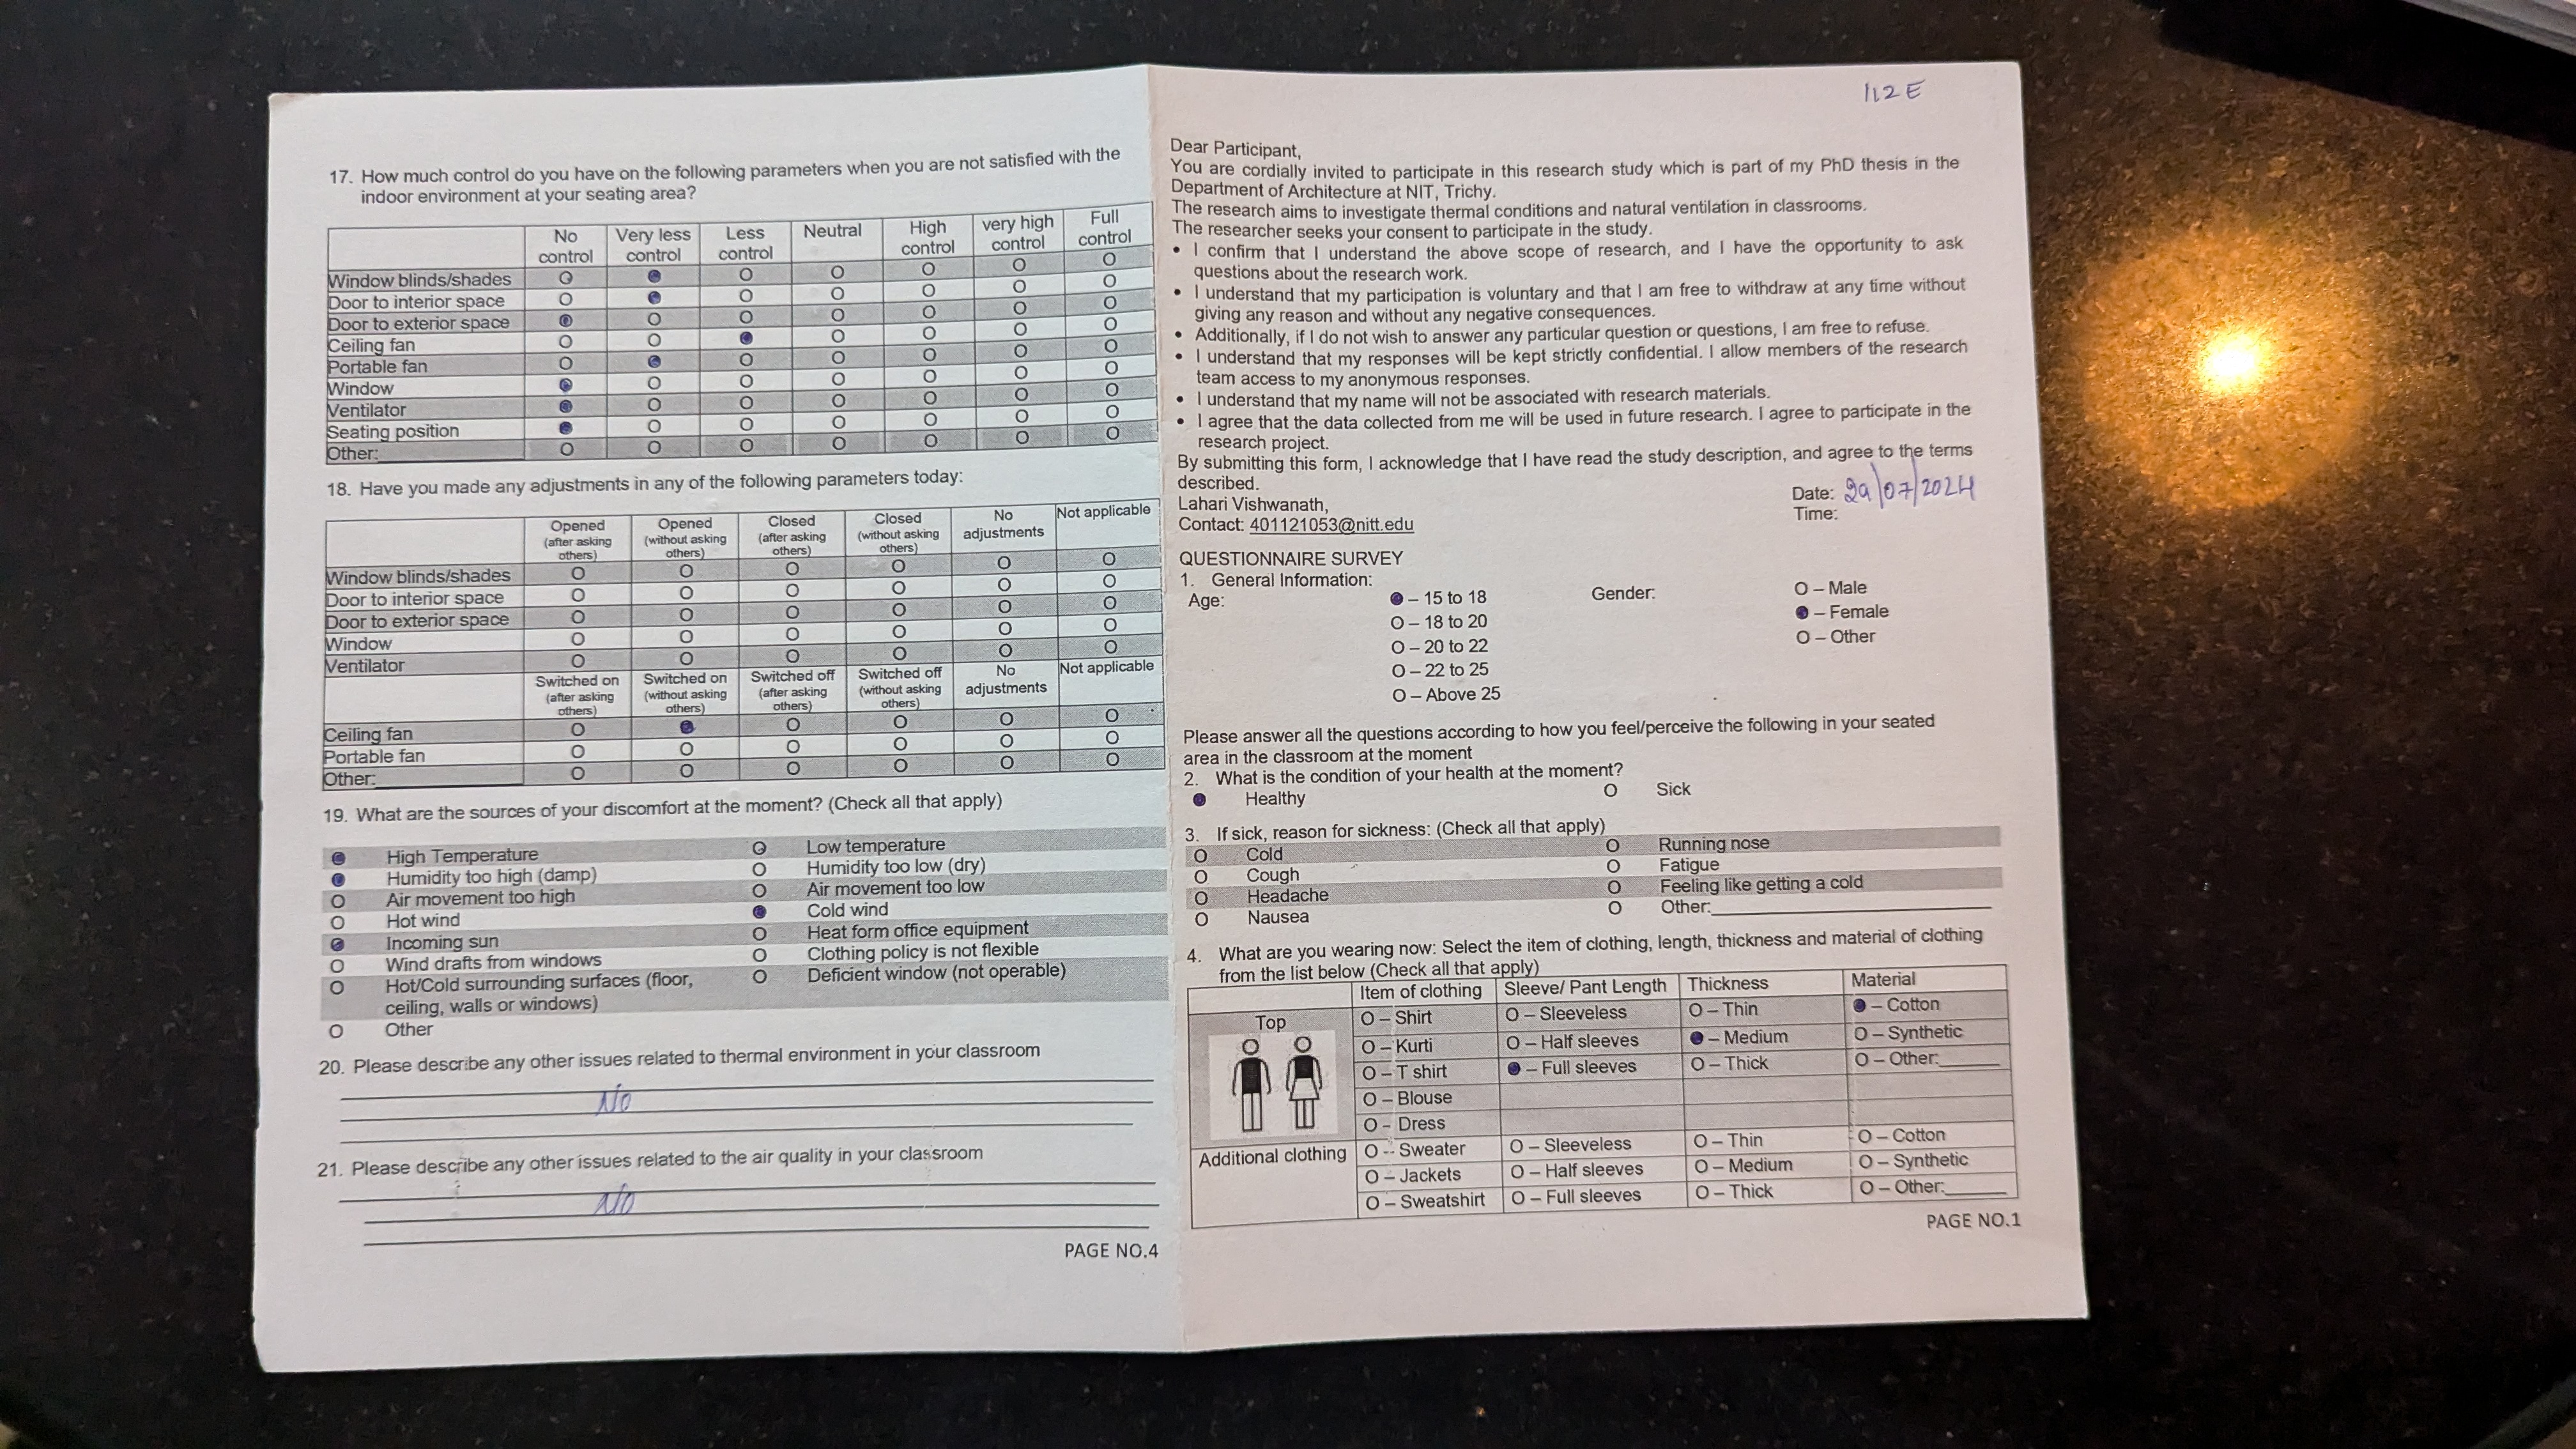 17. How much control do you have on the following parameters when you are not satisfied with the
indoor environment at your seating area?
No control Very less control Less control Neutral High control very high control Full control
Window blinds/shades O ● O O O O O
Door to interior space O ● O O O O O
Door to exterior space ● O O O O O O
Ceiling fan O O ● O O O O
Portable fan O ● O O O O O
Window ● O O O O O O
Ventilator ● O O O O O O
Seating position ● O O O O O O
Other: O O O O O O O
18. Have you made any adjustments in any of the following parameters today:
Opened (after asking others) Opened (without asking others) Closed (after asking others) Closed (without asking others) No adjustments Not applicable
Window blinds/shades O O O O O O
Door to interior space O O O O O O
Door to exterior space O O O O O O
Window O O O O O O
Ventilator O O O O O O
Switched on (after asking others) Switched on (without asking others) Switched off (after asking others) Switched off (without asking others) No adjustments Not applicable
Ceiling fan O ● O O O O
Portable fan O O O O O O
Other: O O O O O O
19. What are the sources of your discomfort at the moment? (Check all that apply)
● High Temperature O Low temperature
● Humidity too high (damp) O Humidity too low (dry)
O Air movement too high O Air movement too low
O Hot wind ● Cold wind
● Incoming sun O Heat form office equipment
O Wind drafts from windows O Clothing policy is not flexible
O Hot/Cold surrounding surfaces (floor, O Deficient window (not operable)
ceiling, walls or windows)
O Other
20. Please describe any other issues related to thermal environment in your classroom
No
21. Please describe any other issues related to the air quality in your classroom
No
PAGE NO.4
112E
Dear Participant,
You are cordially invited to participate in this research study which is part of my PhD thesis in the
Department of Architecture at NIT, Trichy.
The research aims to investigate thermal conditions and natural ventilation in classrooms.
The researcher seeks your consent to participate in the study.
• I confirm that I understand the above scope of research, and I have the opportunity to ask
questions about the research work.
• I understand that my participation is voluntary and that I am free to withdraw at any time without
giving any reason and without any negative consequences.
• Additionally, if I do not wish to answer any particular question or questions, I am free to refuse.
• I understand that my responses will be kept strictly confidential. I allow members of the research
team access to my anonymous responses.
• I understand that my name will not be associated with research materials.
• I agree that the data collected from me will be used in future research. I agree to participate in the
research project.
By submitting this form, I acknowledge that I have read the study description, and agree to the terms
described.
Lahari Vishwanath, Date: 29/07/2024
Contact: 401121053@nitt.edu Time:
QUESTIONNAIRE SURVEY
1. General Information:
Age: ● – 15 to 18 Gender: O – Male
O – 18 to 20 ● – Female
O – 20 to 22 O – Other
O – 22 to 25
O – Above 25
Please answer all the questions according to how you feel/perceive the following in your seated
area in the classroom at the moment
2. What is the condition of your health at the moment?
● Healthy O Sick
3. If sick, reason for sickness: (Check all that apply)
O Cold O Running nose
O Cough O Fatigue
O Headache O Feeling like getting a cold
O Nausea O Other:
4. What are you wearing now: Select the item of clothing, length, thickness and material of clothing
from the list below (Check all that apply)
Item of clothing Sleeve/ Pant Length Thickness Material
Top O – Shirt O – Sleeveless O – Thin ● – Cotton
O – Kurti O – Half sleeves ● – Medium O – Synthetic
O – T shirt ● – Full sleeves O – Thick O – Other:
O – Blouse
O – Dress
Additional clothing O – Sweater O – Sleeveless O – Thin O – Cotton
O – Jackets O – Half sleeves O – Medium O – Synthetic
O – Sweatshirt O – Full sleeves O – Thick O – Other:
PAGE NO.1